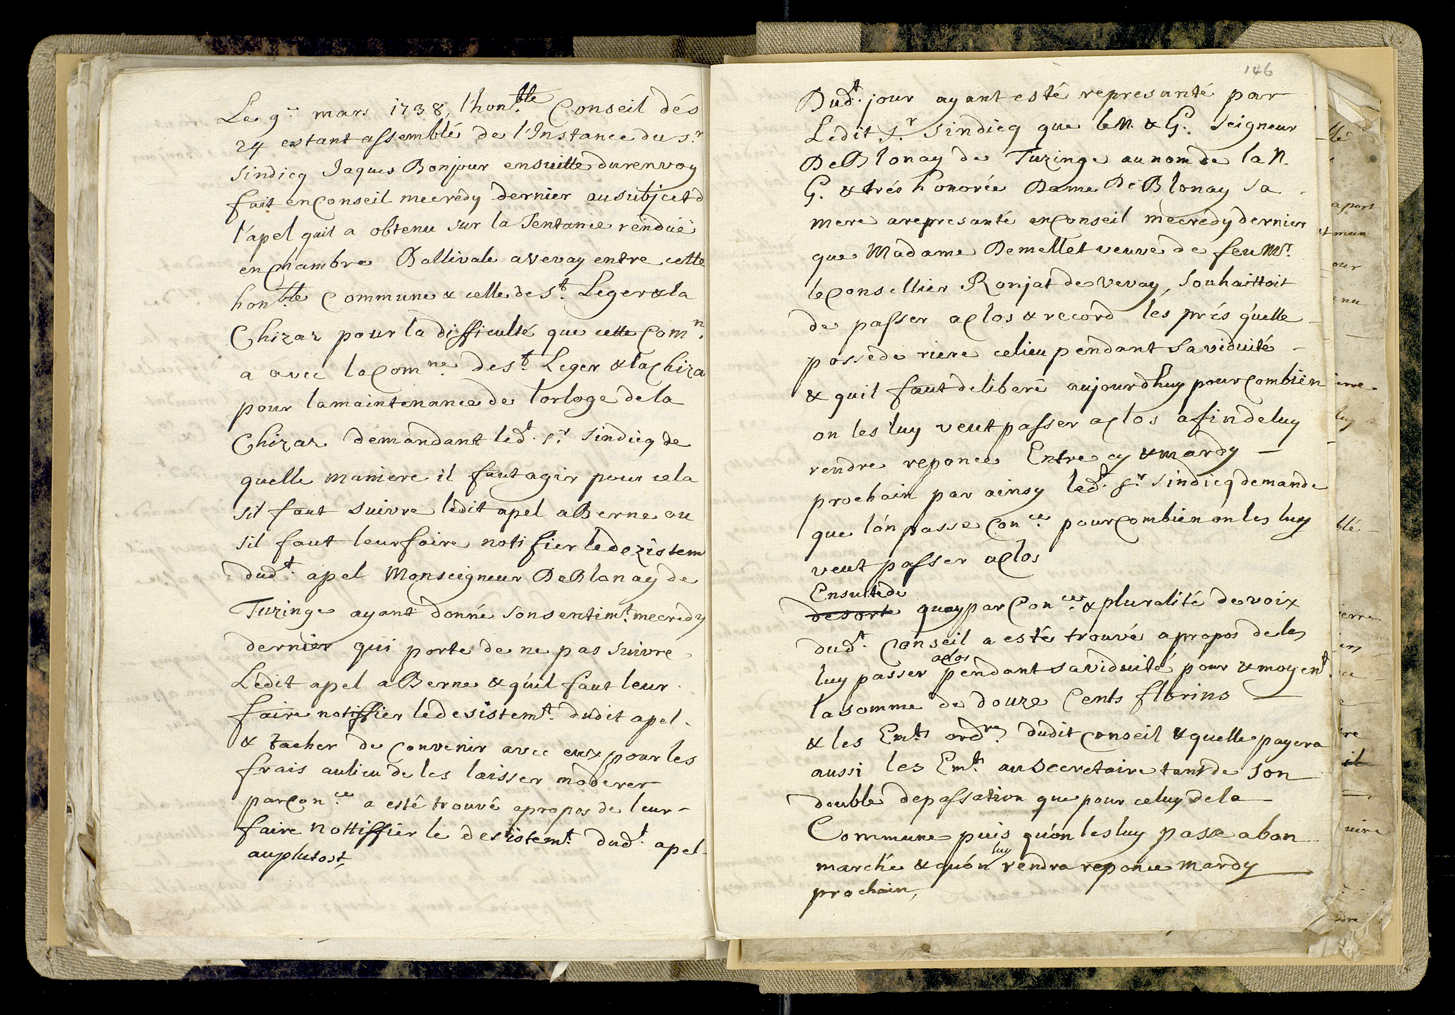 Le 9.e mars 1738, l'hon.ble Conseil dés
24 estant assemblé de l'Instance du s.r
sindicq Jaques Bonjour ensuitte du renvoy
fait en Conseil mecredy dernier au subject d
l'apel quil a obtenu sur la Sentance rendüe
en chambre Ballivale a Vevay entre cette
hon.ble Commune & celle de s.t Leger & la
Chizaz pour la difficulté que cette Com.n
a avec la Com.ne de s.t Leger & la Chiza
pour la maintenance de l'orloge de la
Chizaz demandant led.t s.r sindicq de
quelle maniere il faut agir pour cela
sil faut suivre ledit apel a Berne ou
sil faut leur faire notifier le dezistem
dud.t apel Monseigneur De Blonay de
Tuzinge ayant donné son sentim.t mecredy
dernier qui porte de ne pas suivre
Ledit apel a Berne & qu'il faut leur
faire notiffier le desistem.t dudit apel
& tacher de convenir avec eux pour les
frais au lieu de les laisser moderer
par Con.ce a esté trouvé apropos de leur
faire nottiffier le desistem.t dud.t apel
au plutost,
146
Dud.t jour ayant esté represanté par
Ledit s.r sindicq que le N. & G. seigneur
De Blonay de Tuzinge au nom de la N.
G. & trés honorée Dame De Blonay sa
mere a represanté en Conseil mecredy dernier
que Madame Demellet veuve de feu M.r
le Consellier Ronjat de Vevay, souhaittoit
de passer a clos & record les prés qu'elle
possede riere ce lieu pendant sa viduité
& quil faut deliberé aujourdhuy pour combien
on les luy veut passer a clos afin de luy
rendre reponce Entre cy & mardy
prochain par ainsy led.t s.r sindicq demande
que lón passe Con.ce pour combien on les luy
veut passer a clos
Ensuite de
desorte quoy par Con.ce & pluralité de voix
dud.t Conseil a esté trouvé apropos de les
a clos
luy passer pendant sa viduité pour & moyen.t
la somme de douze Cents florins
& les Em.ts ord.res dudit Conseil & quelle payera
aussi les Em.ts au secretaire tant de son
double de passation que pour celuy de la
Commune puis qu'ón les luy passe a bon
luy
marché & qu'ón rendra reponce mardy
prochain,